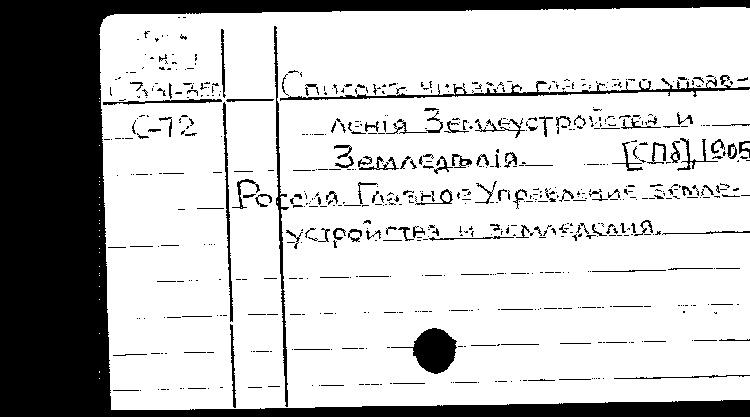 С341-350
Списокъ чинамъ главнаго управ-
С-72
ленія Землеустройства и
Земледѣлія. [СПб], 1905
Россия. Главное Управление земле-
устройства и земледелия.